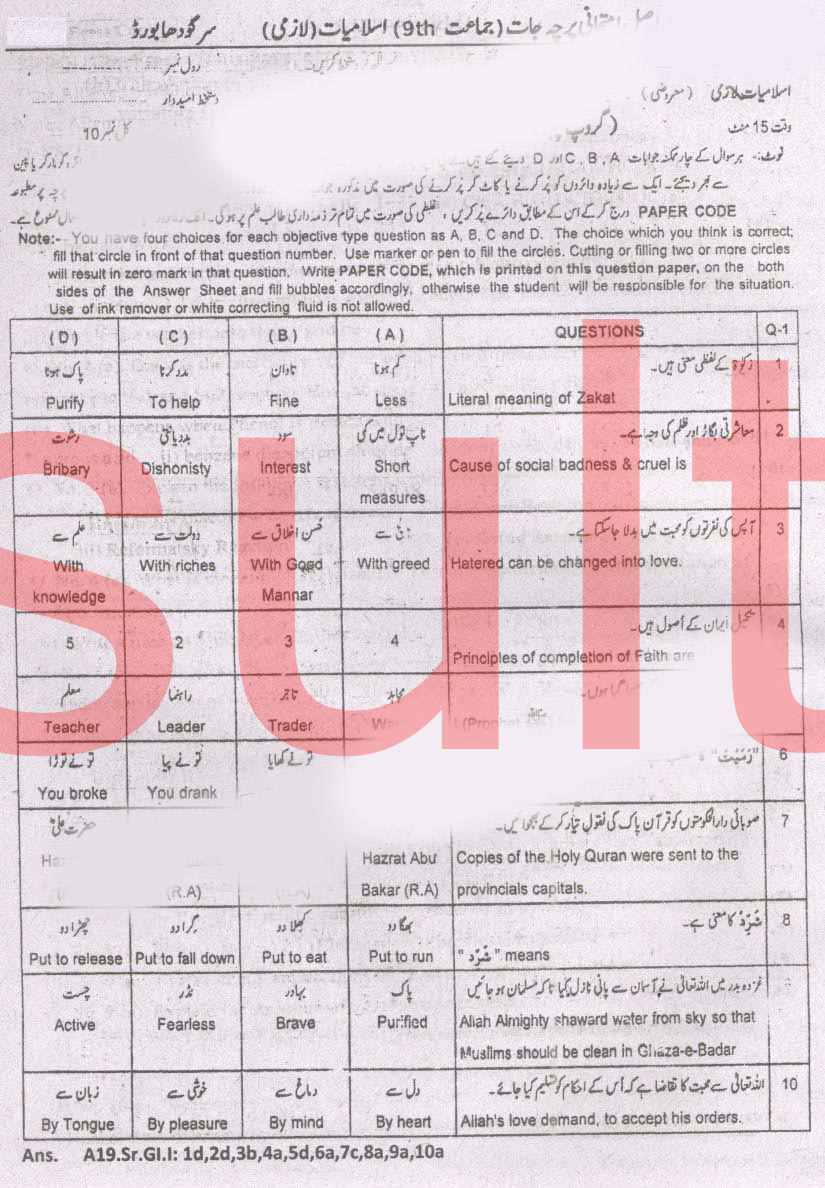 پرچہ جات (جماعت 9th) اسلامیات (لازمی) سرگودھا بورڈ
رول نمبر
اسلامیات لازمی (معروضی)
دستخط امیدوار
وقت 15 منٹ (گروپ
کل نمبر 10
نوٹ:- ہر سوال کے چار ممکنہ جوابات A ، B ، C اور D دیئے گئے ہیں
سے بھر دیجئے۔ ایک سے زیادہ دائروں کو پُر کرنے یا کاٹ کر پُر کرنے کی صورت میں مذکورہ
PAPER CODE درج کر کے اس کے مطابق دائرے پُر کریں ، غلطی کی صورت میں تمام تر ذمہ داری طالب علم پر ہوگی۔ ممنوع ہے۔
Note:- You have four choices for each objective type question as A, B, C and D. The choice which you think is correct;
fill that circle in front of that question number. Use marker or pen to fill the circles. Cutting or filling two or more circles
will result in zero mark in that question. Write PAPER CODE, which is printed on this question paper, on the both
sides of the Answer Sheet and fill bubbles accordingly, otherwise the student will be responsible for the situation.
Use of ink remover or white correcting fluid is not allowed.
(D) (C) (B) (A) QUESTIONS Q-1
پاک ہونا مدد کرنا تاوان کم ہونا زکوٰۃ کے لفظی معنی ہیں۔ 1
Purify To help Fine Less Literal meaning of Zakat
رشوت بددیانتی سود ناپ تول میں کمی معاشرتی بگاڑ اور ظلم کی وجہ ہے۔ 2
Bribary Dishonisty Interest Short Cause of social badness & cruel is
measures
علم سے دولت سے حُسن اخلاق سے آپس کی نفرتوں کو محبت میں بدلا جاسکتا ہے۔ 3
With With riches With Good With greed Hatered can be changed into love.
knowledge Mannar
5 2 3 4 تکمیل ایمان کے اُصول ہیں۔ 4
Principles of completion of Faith are
معلم راہنما تاجر مجاہد
Teacher Leader Trader I (Prophet
تونے توڑا تونے پیا تونے کھایا "رَمَيْتَ" 6
You broke You drank
حضرت علیؓ صوبائی دارالحکومتوں کو قرآن پاک کی نقول تیار کر کے بھجوائیں۔ 7
Hazrat Abu Copies of the Holy Quran were sent to the
(R.A) Bakar (R.A) provincials capitals.
چھڑا دو گرا دو کھلا دو بھگا دو شَرِّدْ کا معنی ہے۔ 8
Put to release Put to fall down Put to eat Put to run "شَرِّدْ" means
چست نڈر بہادر پاک غزوہ بدر میں اللہ تعالیٰ نے آسمان سے پانی نازل کیا تاکہ مسلمان ہو جائیں
Active Fearless Brave Purified Allah Almighty shaward water from sky so that
Muslims should be clean in Ghaza-e-Badar
زبان سے خوشی سے دماغ سے دل سے اللہ تعالیٰ سے محبت کا تقاضا ہے کہ اُس کے احکام کو تسلیم کیا جائے۔ 10
By Tongue By pleasure By mind By heart Allah's love demand, to accept his orders.
Ans. A19.Sr.GI.I: 1d,2d,3b,4a,5d,6a,7c,8a,9a,10a
sult